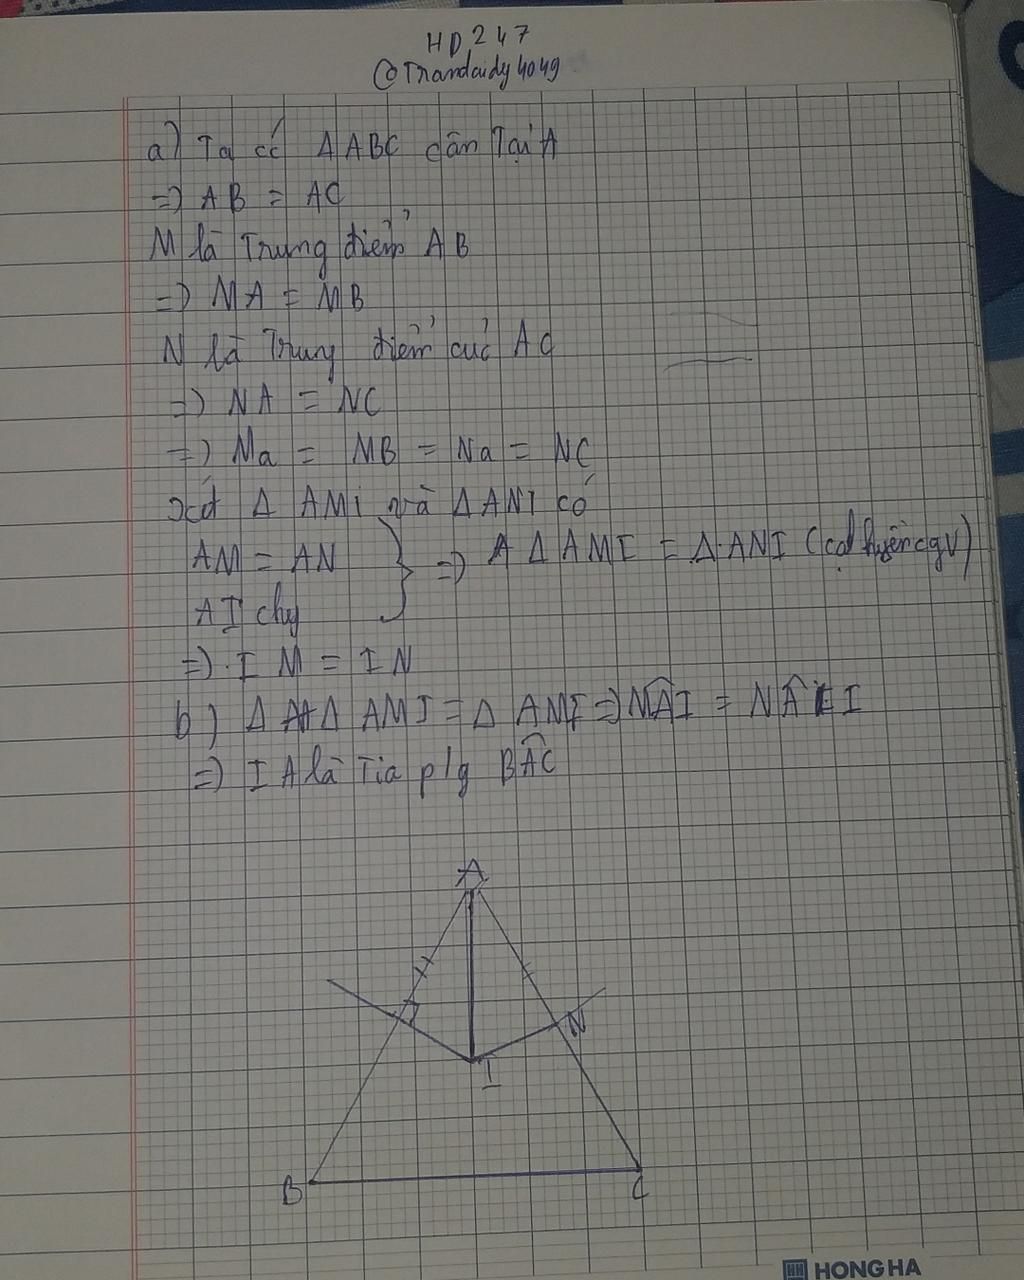 HD247
@Trandaidy4049
a) Ta có Δ ABC cân Tại A
=> AB = AC
M là Trung điểm AB
=> MA = MB
N là Trung điểm củả AC
=> NA = NC
=> Ma = MB = Na = NC
xét Δ AMi và Δ ANI có
AM = AN
AI chg
=> Δ AMI = Δ ANI (cạh huyền cgv)
=> IM = IN
b) Δ AMI = Δ AMI => MÂI = NÂI
=> IA là Tia p/g BÂC
A
N
I
B
C
HH HONG HA